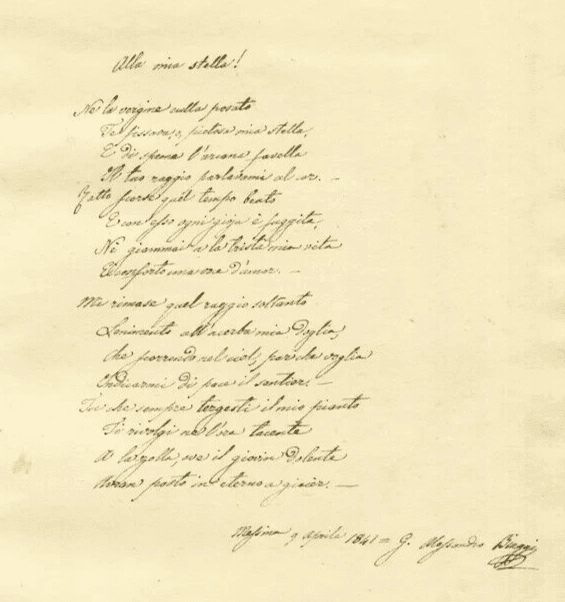 Alla mia stella!
Ne la vergine culla posato
Te fissava, o pietosa mia stella,
E di speme l'arcana favella
Il tuo raggio parlavami al cor. —
Tutto sparse quel tempo beato
E con esso ogni gioja è fuggita,
Nè giammai a la trista mia vita
È conforto una ora d'amor. —
Mi rimase quel raggio soltanto
Lenimento all'acerba mia doglia,
Che scorrendo nel ciel, par che voglia
Indicarmi di pace il sentier. —
Tu che sempre tergesti il mio pianto
Ti rivolgi ne l'ora tacente
A la zolla, ove il giovin dolente
Avran posto in eterno a giacer. —
Messina 9 Aprile 1841 = G. Alessandro